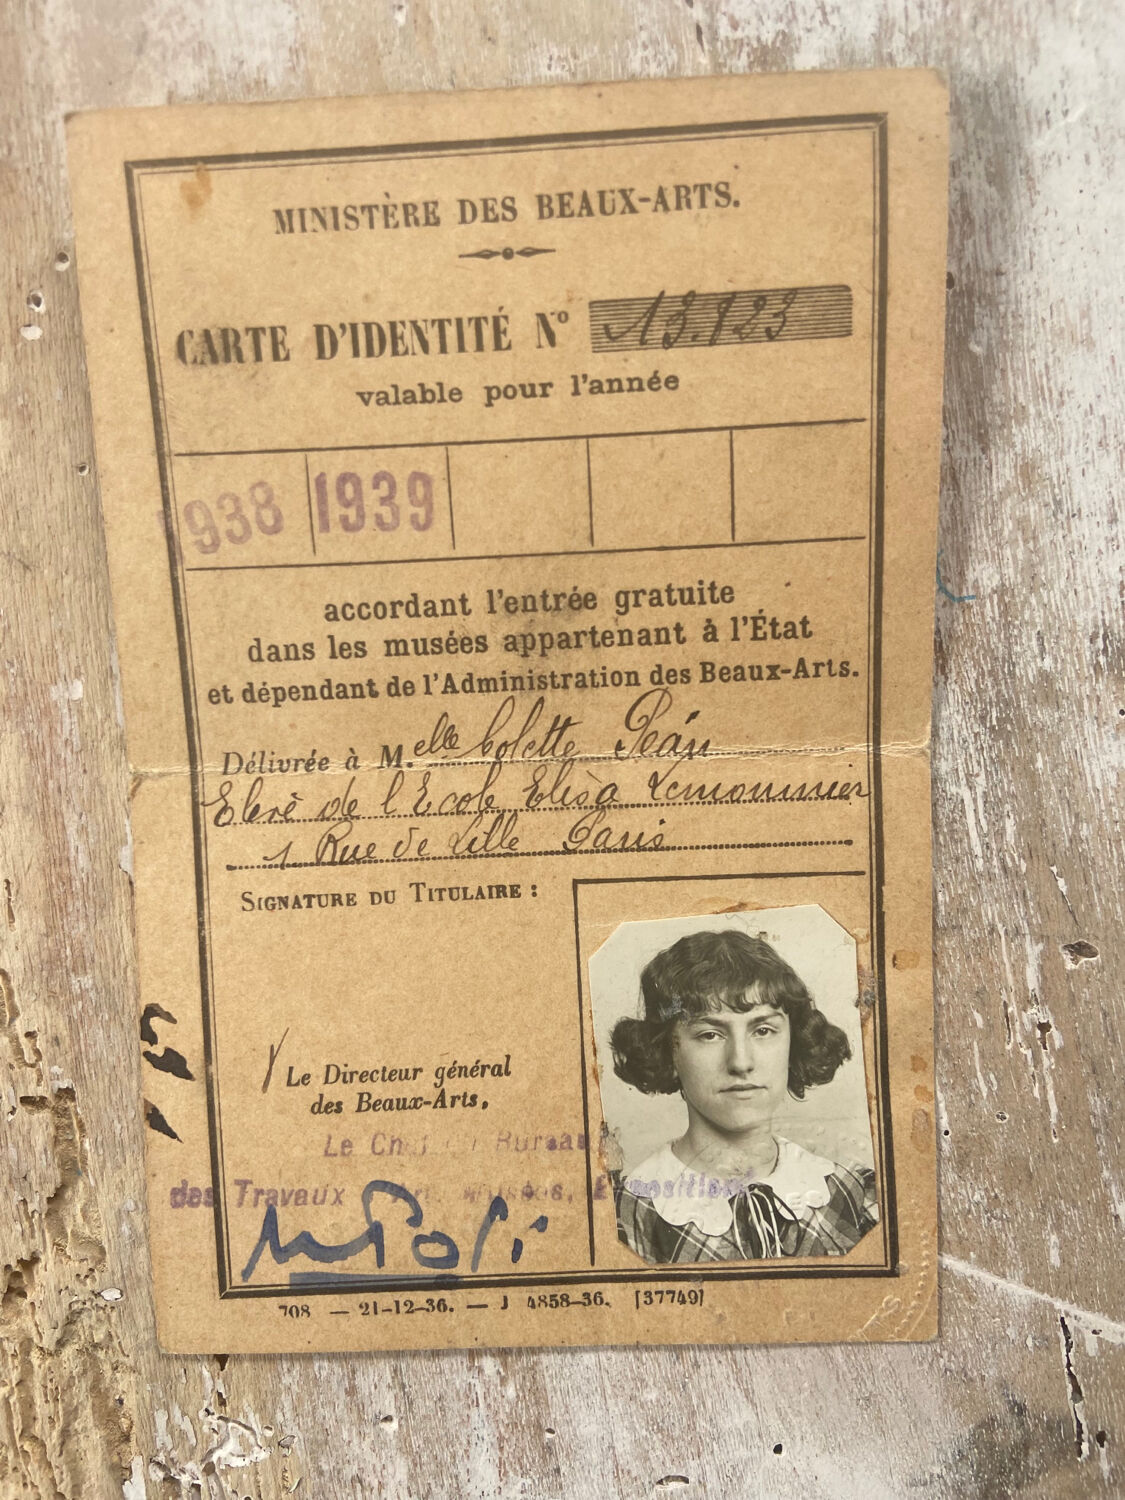 MINISTÈRE DES BEAUX-ARTS.
CARTE D'IDENTITÉ Nº 13.123
valable pour l'année
1938 1939
accordant l'entrée gratuite
dans les musées appartenant à l'État
et dépendant de l'Administration des Beaux-Arts.
Délivrée à M.elle Colette Péan
Elève de l'Ecole Elisa Lemonnier
1 Rue de Lille Paris
SIGNATURE DU TITULAIRE :
Le Directeur général
des Beaux-Arts,
Le Chef du Bureau
des Travaux Musées, Expositions
708 — 21-12-36. — J 4858-36. [37749]